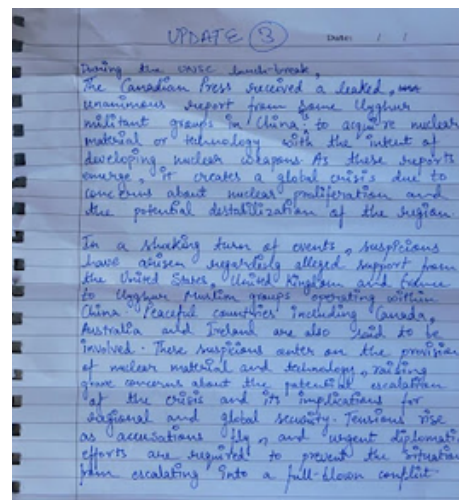 UPDATE 3
Date: / /
During the UNSC lunch-break,
The Canadian Press received a leaked,
unanimous report from some Uyghur
militant groups in China, to acquire nuclear
material or technology with the intent of
developing nuclear weapons. As these reports
emerge, it creates a global crisis due to
concerns about nuclear proliferation and
the potential destabilization of the region.
In a shocking turn of events, suspicious
have arisen regarding alleged support from
the United States, United Kingdom and France
to Uyghur Muslim groups operating within
China. 'Peaceful countries' including Canada,
Australia and Ireland are also said to be
involved. These suspicious center on the provision
of nuclear material and technology, raising
grave concerns about the potential escalation
of the crisis and its implications for
regional and global security. Tensions rise
as accusations fly, and urgent diplomatic
efforts are required to prevent the situation
from escalating into a full-blown conflict.